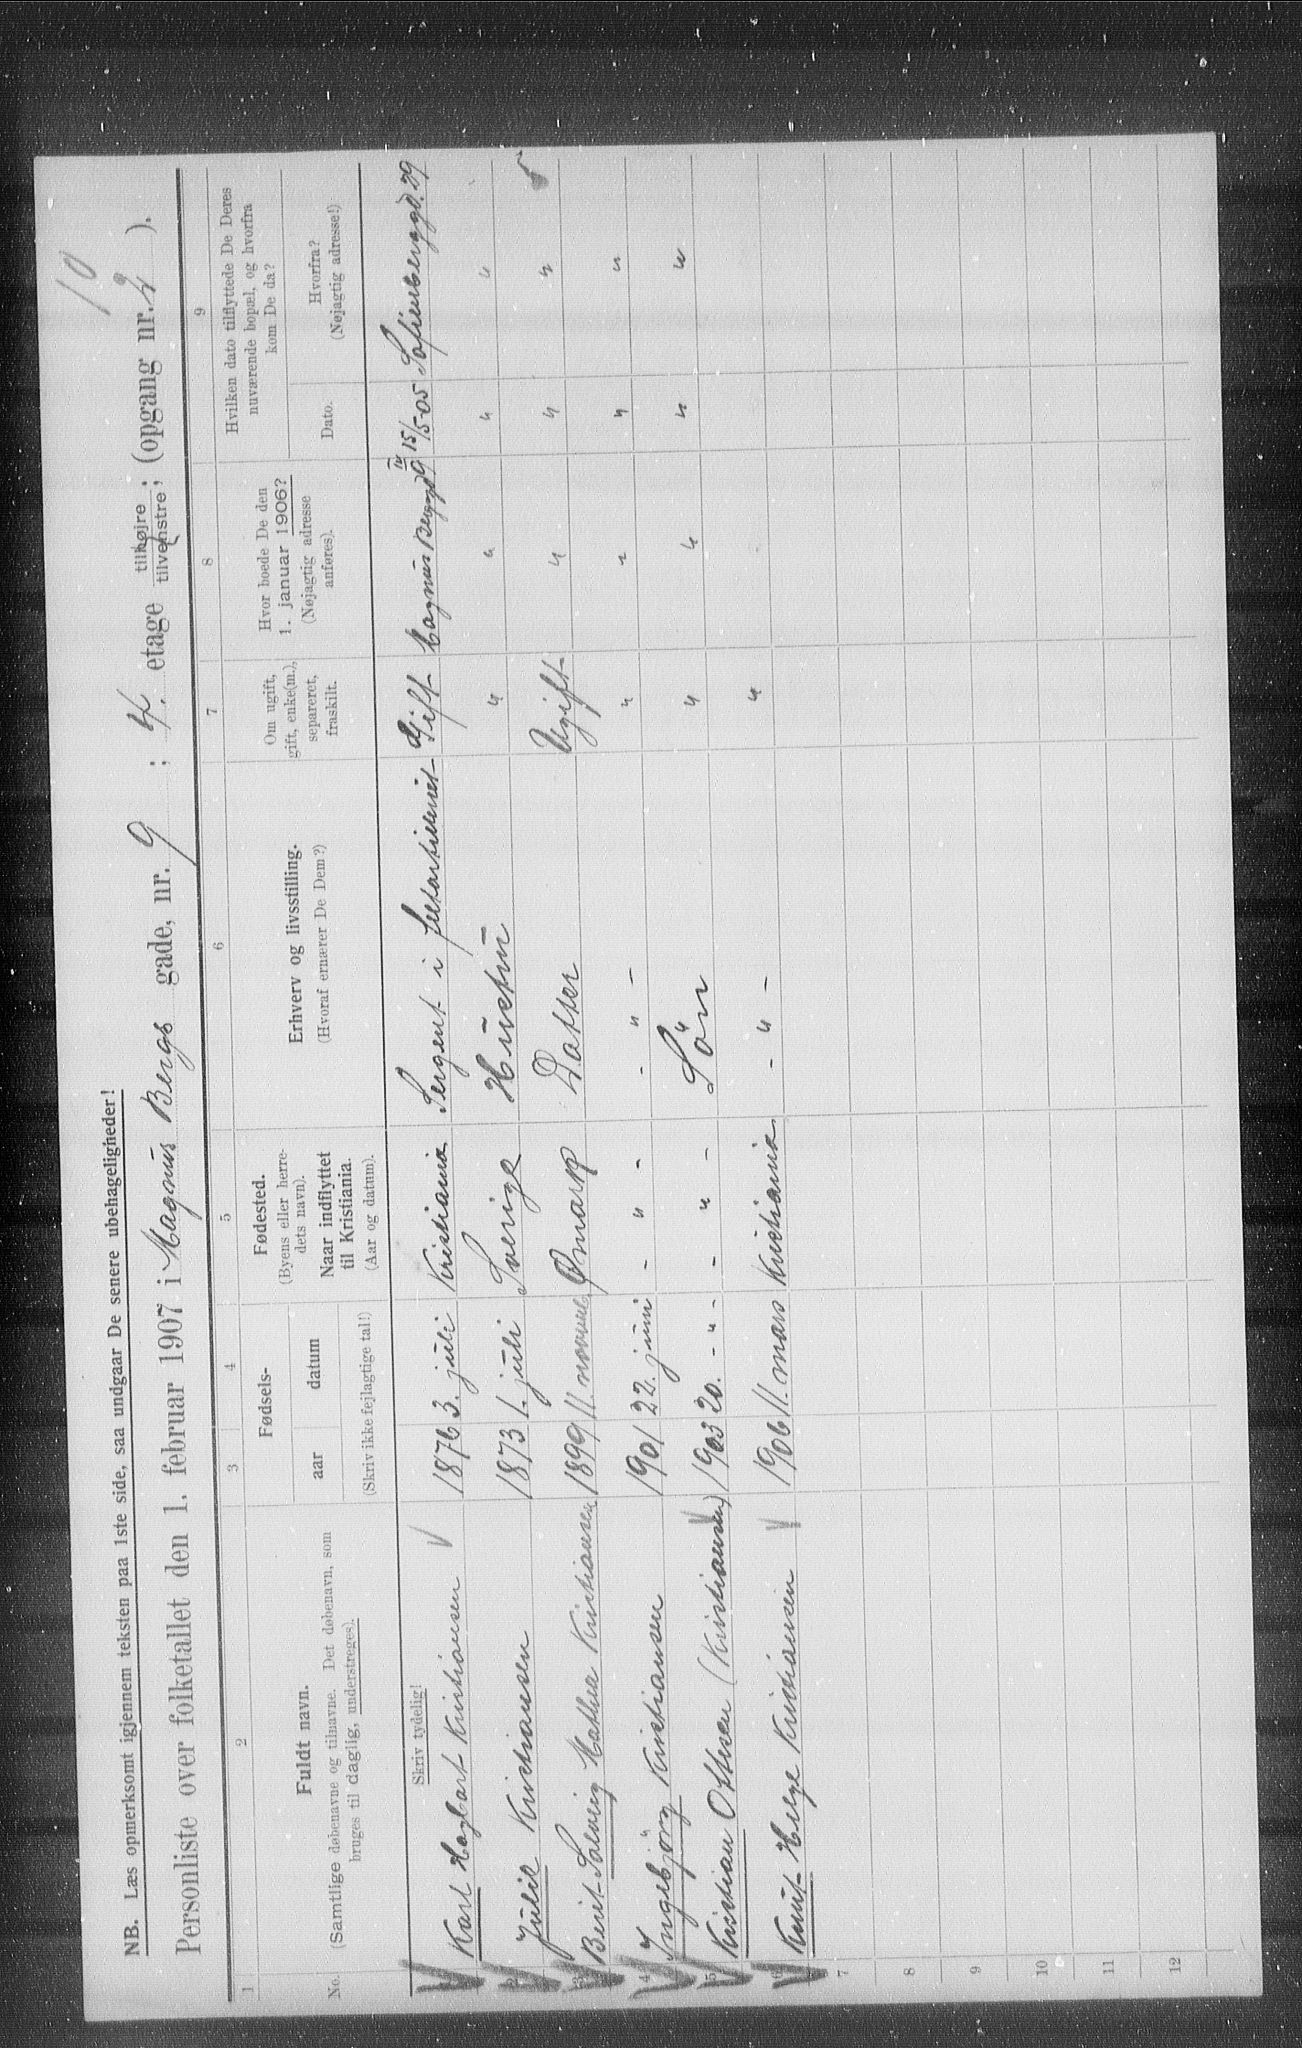 10
NB. Læs opmerksomt igjennem teksten paa 1ste side, saa undgaar De senere ubehageligheder!
Personliste over folketallet den 1. februar 1907 i Magnus Bergs gade, nr. 9 ; 4. etage tilhøjre tilvenstre; (opgang nr. 2 ).
1 2 3 4 5 6 7 8 9
No.
Fuldt navn.
(Samtlige døbenavne og tilnavne. Det døbenavn, som
bruges til daglig, understreges).
Fødsels-
aar datum
(Skriv ikke fejlagtige tal!)
Fødested.
(Byens eller herre-
dets navn).
Naar indflyttet
til Kristiania.
(Aar og datum).
Erhverv og livsstilling.
(Hvoraf ernærer De Dem?)
Om ugift,
gift, enke(m.),
separeret,
fraskilt.
Hvor boede De den
1. januar 1906?
(Nøjagtig adresse
anføres).
Hvilken dato tilflyttede De Deres
nuværende bopæl, og hvorfra
kom De da?
Dato.
Hvorfra?
(Nøjagtig adresse!)
Skriv tydelig!
Karl Hagbart Kristiansen 1876 3. juli Kristiania Sergent i feltartilleriet Gift Magnus Bergsgd 9 IV 15/5 05 Sofienberggd. 29
2 Julie Kristiansen 1873 1. juli Sverige Hustru " " " "
3 Berit Solveig Mathea Kristiansen 1899 11. novem Ømark Datter Ugift " " "
4 Ingebjörg Kristiansen 1901 22. juni - " - - " - " " " "
5 Kristian Ottesen (Kristiansen) 1903 20. - " - - " - Sön " " " "
6 Knut Helge Kristiansen 1906 11. mars Kristiania - " - "
7
8
9
10
11
12